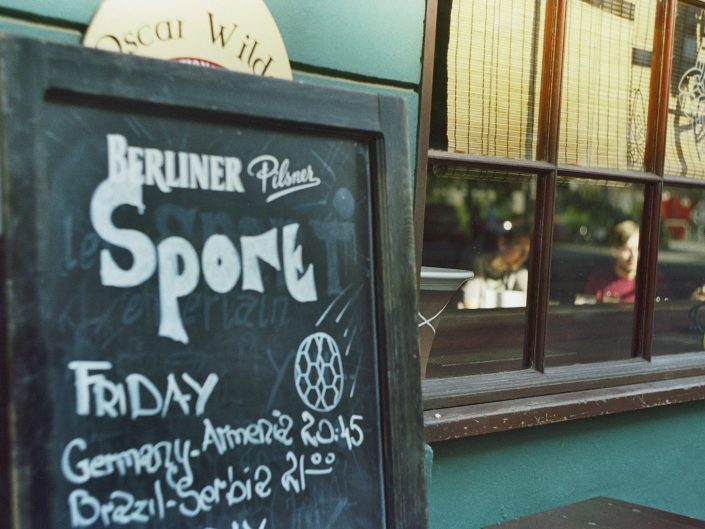 Oscar Wild
BERLINER Pilsner
Sport
FRIDAY
Germany-Armenia 20:45
Brazil-Serbia 21:00